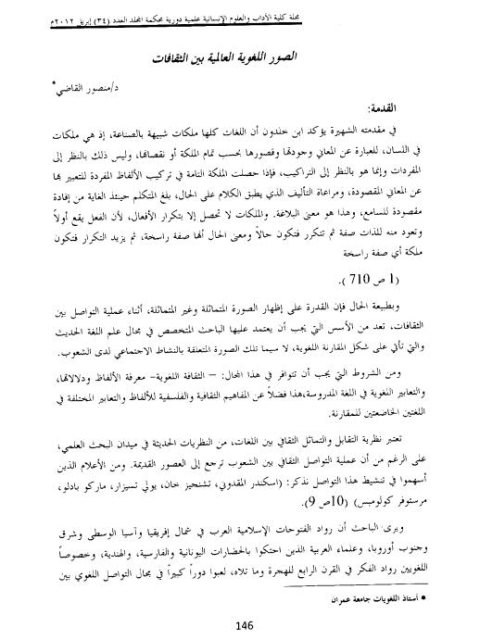 مجلة كلية الآداب والعلوم الإنسانية علمية دورية محكمة المجلد العدد (٣٤) إبريل ٢٠١٢م
الصور اللغوية العالمية بين الثقافات
د/منصور القاضي*
المقدمة:
في مقدمته الشهيرة يؤكد ابن خلدون أن اللغات كلها ملكات شبيهة بالصناعة، إذ هي ملكات
في اللسان، للعبارة عن المعاني وجودتها وقصورها بحسب تمام الملكة أو نقصانها، وليس ذلك بالنظر إلى
المفردات وإنما هو بالنظر إلى التراكيب، فإذا حصلت الملكة التامة في تركيب الألفاظ المفردة للتعبير بها
عن المعاني المقصودة، ومراعاة التأليف الذي يطبق الكلام على الحال، بلغ المتكلم حينئذ الغاية من إفادة
مقصودة للسامع، وهذا هو معنى البلاغة. والملكات لا تحصل إلا بتكرار الأفعال، لأن الفعل يقع أولاً
وتعود منه للذات صفة ثم تتكرر فتكون حالاً ومعنى الحال أنها صفة راسخة، ثم يزيد التكرار فتكون
ملكة أي صفة راسخة
(1 ص 710 ).
وبطبيعة الحال فإن القدرة على إظهار الصورة المتماثلة وغير المتماثلة، أثناء عملية التواصل بين
الثقافات، تعد من الأسس التي يجب أن يعتمد عليها الباحث المتخصص في مجال علم اللغة الحديث
والتي تأتي على شكل المقارنة اللغوية، لا سيما تلك الصورة المتعلقة بالنشاط الاجتماعي لدى الشعوب.
ومن الشروط التي يجب أن تتوافر في هذا المجال: – الثقافة اللغوية- معرفة الألفاظ ودلالاتها،
والتعابير اللغوية في اللغة المدروسة،هذا فضلاً عن المفاهيم الثقافية والفلسفية للألفاظ والتعابير المختلفة في
اللغتين الخاضعتين للمقارنة.
تعتبر نظرية التقابل والتماثل الثقافي بين اللغات، من النظريات الحديثة في ميدان البحث العلمي،
على الرغم من أن عملية التواصل الثقافي بين الشعوب ترجع إلى العصور القديمة. ومن الأعلام الذين
أسهموا في تنشيط هذا التواصل نذكر: (اسكندر المقدوني، تشنجيز خان، يولي تسيزار، ماركو بادلو،
مرستوفر كولومبس) (10ص 9).
ويرى الباحث أن رواد الفتوحات الإسلامية العرب في شمال إفريقيا وآسيا الوسطى وشرق
وجنوب أوروبا، وعلماء العربية الذين احتكوا بالحضارات اليونانية والفارسية، والهندية، وخصوصاً
اللغويين رواد الفكر في القرن الرابع للهجرة وما تلاه، لعبوا دوراً كبيراً في مجال التواصل اللغوي بين
* أستاذ اللغويات جامعة عمران
146